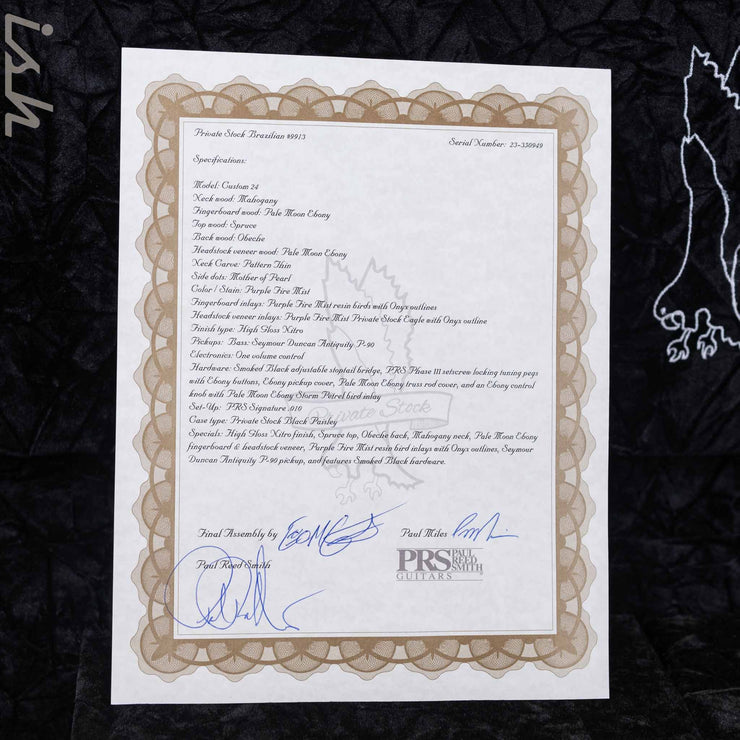 ish
Private Stock Brazilian #9913
Serial Number: 23-350949
Specifications:
Model: Custom 24
Neck wood: Mahogany
Fingerboard wood: Pale Moon Ebony
Top wood: Spruce
Back wood: Obeche
Headstock veneer wood: Pale Moon Ebony
Neck Carve: Pattern Thin
Side dots: Mother of Pearl
Color / Stain: Purple Fire Mist
Fingerboard inlays: Purple Fire Mist resin birds with Onyx outlines
Headstock veneer inlays: Purple Fire Mist Private Stock Eagle with Onyx outline
Finish type: High Gloss Nitro
Pickups: Bass: Seymour Duncan Antiquity P-90
Electronics: One volume control
Hardware: Smoked Black adjustable stoptail bridge, PRS Phase III setscrew locking tuning pegs
with Ebony buttons, Ebony pickup cover, Pale Moon Ebony truss rod cover, and an Ebony control
knob with Pale Moon Ebony Storm Petrel bird inlay
Private Stock
Set-Up: PRS Signature .010
Case type: Private Stock Black Paisley
Specials: High Gloss Nitro finish, Spruce top, Obeche back, Mahogany neck, Pale Moon Ebony
fingerboard & headstock veneer, Purple Fire Mist resin bird inlays with Onyx outlines, Seymour
Duncan Antiquity P-90 pickup, and features Smoked Black hardware.
Final Assembly by
Paul Miles
Paul Reed Smith
PRS PAUL REED SMITH
GUITARS